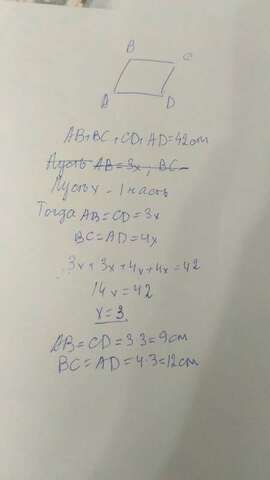 B
C
A
D
AB+BC+CD+AD=42cm
Пусть AB=3x; BC-
Пусть x - 1 часть
Тогда AB=CD=3x
BC=AD=4x
3x+3x+4x+4x=42
14x=42
x=3
AB=CD=3·3=9cm
BC=AD=4·3=12cm